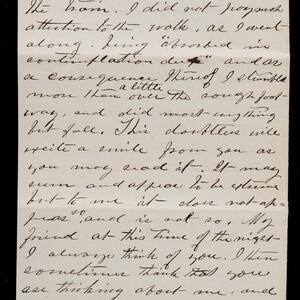 the train. I did not pay much
attention to the walk, as I went
along. Being absorbed in
contemplation and as
a consequence thereof I stumbled
more than a little over the rough foot
way, and did most anything
but fall. This doubtless will
excite a smile from you as
you may read it. It may
seem and appear to be extreme
but to me it does not ap
pear so, and is not so. My
friend at this time of the night
I always think of you. I then
sometimes think that you
are thinking about me. and